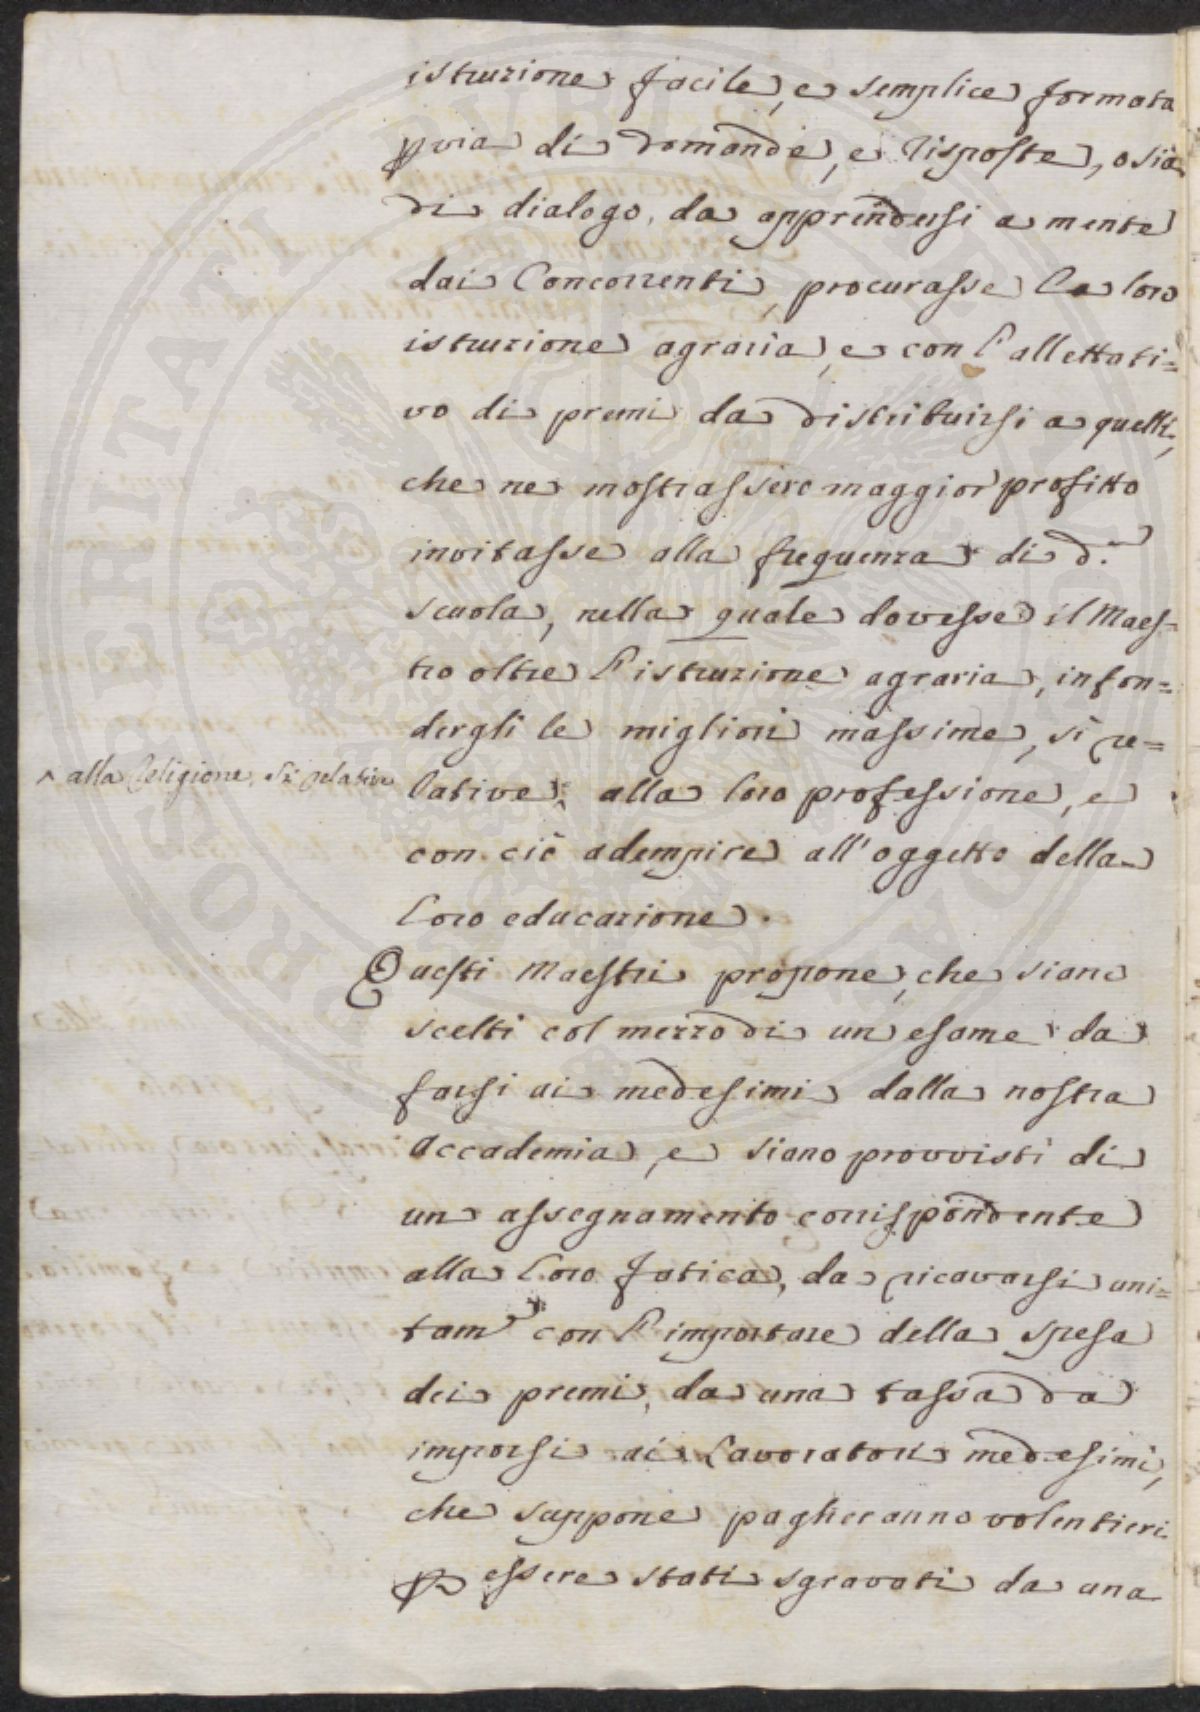 istruzione facile, e semplice formata
p via di domande, e risposte, o sia
di dialogo, da apprendersi a mente
dai Concorrenti, procurasse la loro
istruzione agraria, e con l'allettati=
vo di premi da distribuirsi a quelli,
che ne mostrassero maggior profitto
invitasse alla frequenza di d.ª
scuola, nella quale dovesse il Maes=
tro oltre l'istruzione agraria, infon=
dergli le migliori massime, sì re=
^ alla Religione, sì relative
lative ^ alla loro professione, e
con ciò adempire all'oggetto della
loro educazione.
Questi Maestri propone, che siano
scelti col mezzo di un esame da
farsi ai medesimi dalla nostra
Accademia, e siano provvisti di
un assegnamento corrispondente
alla loro fatica, da ricavarsi uni=
tam.e con l'importare della spesa
dei premi, da una tassa da
imporsi ai Lavoratori medesimi,
che suppone pagheranno volentieri
p essere stati sgravati da una
PROSPERITATI PUBLICAE AUGENDAE